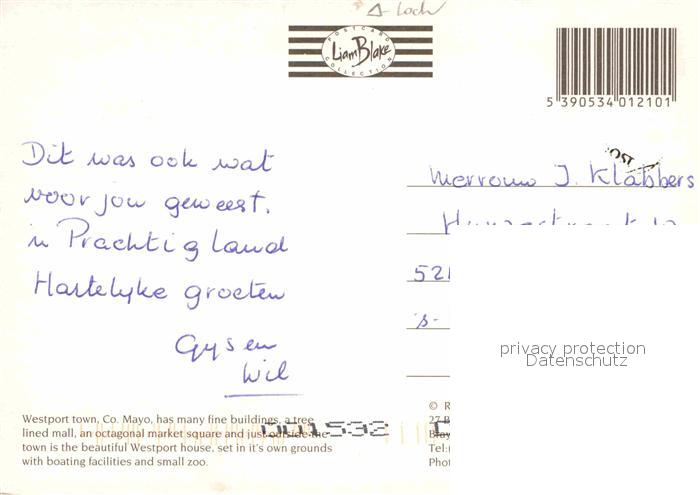 Δ-Loch
POSTCARD
Liam Blake
COLLECTION
5 390534 012101
Dit was ook wat
voor jou geweest.
in Prachtig land
Hartelyke groeten
Gysen
Wil
Mevrouw J. Klabbers
521
's-
privacy protection
Datenschutz
Westport town, Co. Mayo, has many fine buildings, a tree
lined mall, an octagonal market square and just outside the
town is the beautiful Westport house, set in it's own grounds
with boating facilities and small zoo.
001532
© R
27 B
Bray
Tel:
Phot